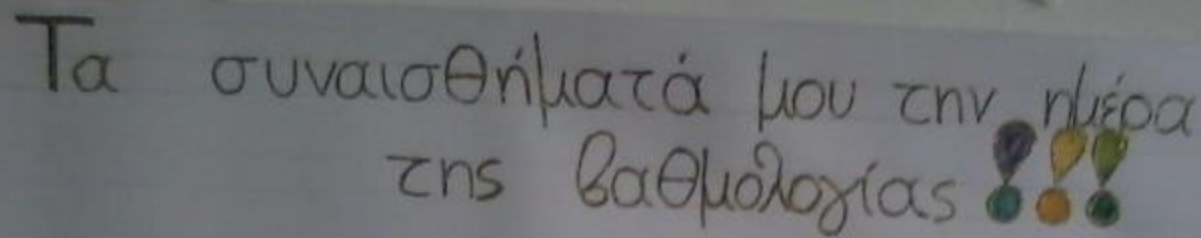 Τα συναισθήματά μου την ημέρα
της βαθμολογίας!!!